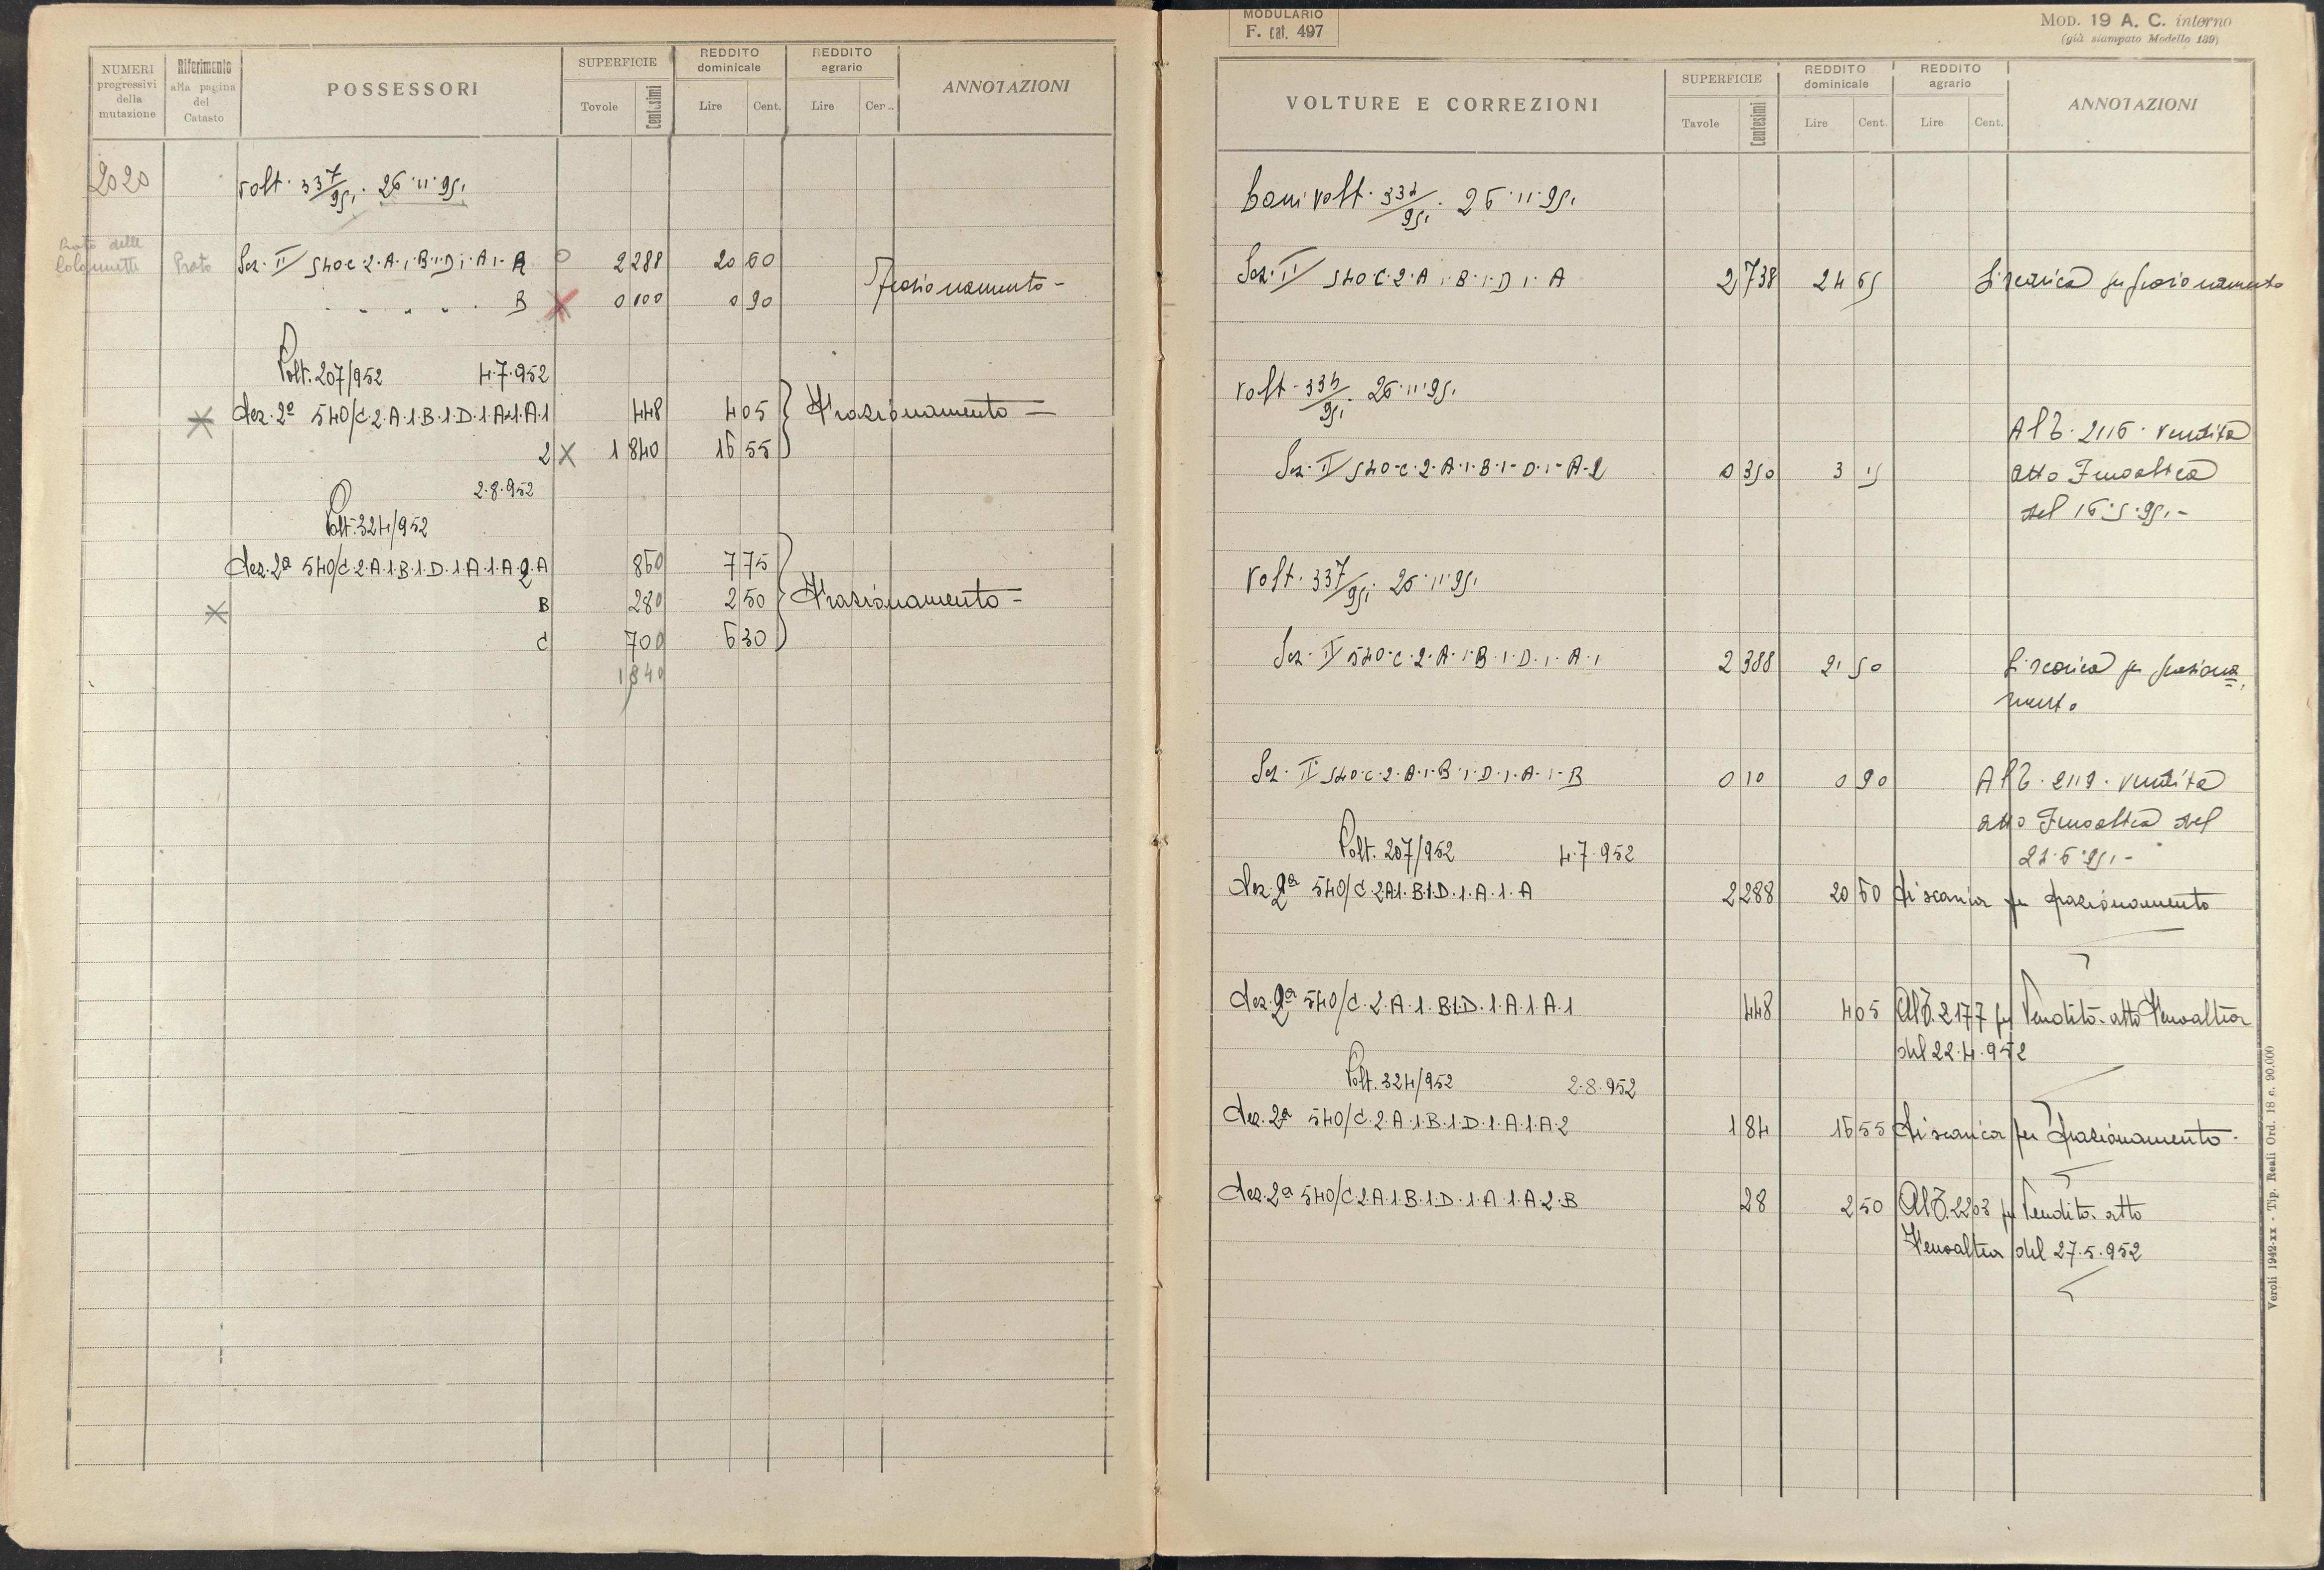 NUMERI progressivi della mutazione
Riferimento alla pagina del Catasto
POSSESSORI
SUPERFICIE
Tavole Centesimi
REDDITO dominicale
Lire Cent.
REDDITO agrario
Lire Cen..
ANNOTAZIONI
2020
Volt. 337/951. 26.11.951
Prato delle Colonnette Prato Sez. II 540 C.2.A.1.B.1.D.1.A.1.A 2 288 20 60
" " " " " B X 0 100 0 90 Frazionamento -
Volt. 207/952 4.7.952
Sez. 2ª 540/C.2.A.1.B.1.D.1.A.1.A.1 448 4 05 Frazionamento =
2 X 1 840 16 55
2.8.952
Volt. 324/952
Sez. 2ª 540/C.2.A.1.B.1.D.1.A.1.A.2.A 860 7 75
B 280 2 50 Frazionamento =
C 700 6 30
1840
MODULARIO
F. cat. 497
MOD. 19 A. C. interno
(già stampato Modello 139)
VOLTURE E CORREZIONI
SUPERFICIE
Tavole Centesimi
REDDITO dominicale
Lire Cent.
REDDITO agrario
Lire Cent.
ANNOTAZIONI
volt. 26.11.951
Sez. II 540 C.2.A.1.B.1.D.1.A 2,738 24 65 Si scarica per frazionamento
Volt. 26.11.951
Sez. II 540.C.2.A.1.B.1.D.1.A.2 0 350 3 15 All'b. 2116. vendita
atto Fenoaltea
del 16.5.951.-
Volt. 337/951. 26.11.951
Sez. II 540.C.2.A.1.B.1.D.1.A.1 2 388 21 50 Si scarica per fraziona
mento
Sez. II 540.C.2.A.1.B.1.D.1.A.1.B 0 10 0 90 All'b. 2119. vendita
atto Fenoaltea del
21.6.951.-
Volt. 207/952 4.7.952
Sez. 2ª 540/C.2A1.B.1.D.1.A.1.A 2 288 20 60 Si scarica per frazionamento
Sez. 2ª 540/C.2.A.1.B.1.D.1.A.1.A.1 448 4 05 All'b. 2177 per Vendita. atto Fenoaltea
del 22.4.952
Volt. 324/952 2.8.952
Sez. 2ª 540/C.2.A.1.B.1.D.1.A.1.A.2 1 84 16 55 Si scarica per frazionamento.
Sez. 2ª 540/C.2.A.1.B.1.D.1.A.1.A.2.B 28 2 50 All'b. 2203 per Vendita. atto
Fenoaltea del 27.5.952
Veroli 1942-xx - Tip. Reali Ord. 18 c. 90.000